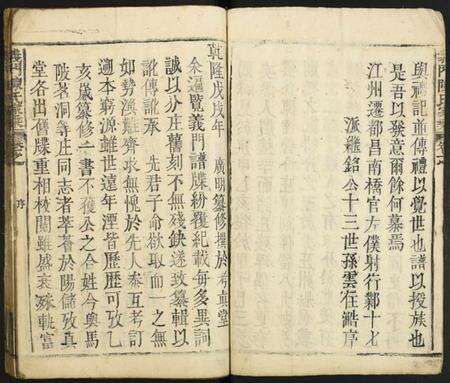 與禮記並傳禮以覺世也譜以授族也
是吾以發意爾餘何慕焉
江州遷都昌南橋官左僕射行鄴十七
派繼銘公十三世孫雲在皓序
乾隆戊戌年
廣明纂修舊於考真堂
余遍覽義門譜牒紛獲紀載每多異詞
誠以分庄舊刻不無殘缺遂致纂輯以
訛傳訛承先君子命欲取而一之無
如勢渙難齊求無愧於先人參互考訂
遡本窮源雖世遠年湮皆歷歷可攷乙
亥歲纂修一書不獲公之合姓今輿馬
陂茗洞等庄同志者萃薈於陽儲攷真
堂各出舊牒重相校閱雖盛衰
軌富
義門陳氏
序
義門陳氏